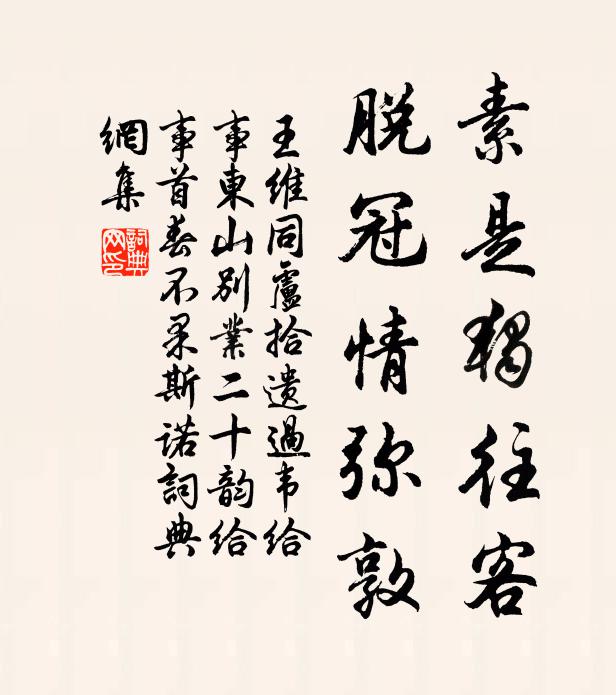 素是獨往客
脫冠情弥敦
王維同盧拾遺過韦給
事東山別業二十韵給
事首春不果斯诺詞典
網集
詞典网印